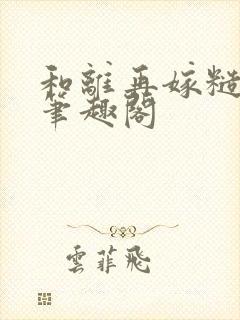 和離再嫁糙
筆趣閣
雲菲飛